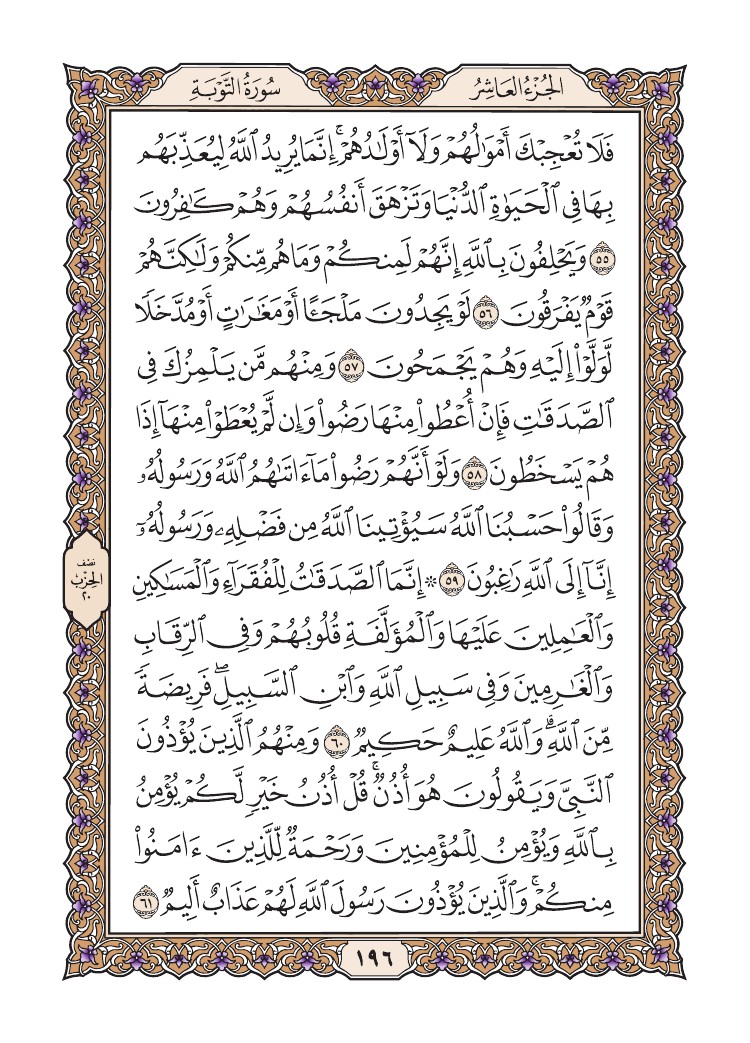 الجُزْءُ العَاشِرُ
سُورَةُ التَّوْبَةِ
فَلَا تُعْجِبْكَ أَمْوَٰلُهُمْ وَلَآ أَوْلَٰدُهُمْ ۚ إِنَّمَا يُرِيدُ ٱللَّهُ لِيُعَذِّبَهُم
بِهَا فِى ٱلْحَيَوٰةِ ٱلدُّنْيَا وَتَزْهَقَ أَنفُسُهُمْ وَهُمْ كَٰفِرُونَ
٥٥ وَيَحْلِفُونَ بِٱللَّهِ إِنَّهُمْ لَمِنكُمْ وَمَا هُم مِّنكُمْ وَلَٰكِنَّهُمْ
قَوْمٌ يَفْرَقُونَ ٥٦ لَوْ يَجِدُونَ مَلْجَـًٔا أَوْ مَغَٰرَٰتٍ أَوْ مُدَّخَلًا
لَّوَلَّوْا۟ إِلَيْهِ وَهُمْ يَجْمَحُونَ ٥٧ وَمِنْهُم مَّن يَلْمِزُكَ فِى
ٱلصَّدَقَٰتِ فَإِنْ أُعْطُوا۟ مِنْهَا رَضُوا۟ وَإِن لَّمْ يُعْطَوْا۟ مِنْهَآ إِذَا
هُمْ يَسْخَطُونَ ٥٨ وَلَوْ أَنَّهُمْ رَضُوا۟ مَآ ءَاتَىٰهُمُ ٱللَّهُ وَرَسُولُهُۥ
وَقَالُوا۟ حَسْبُنَا ٱللَّهُ سَيُؤْتِينَا ٱللَّهُ مِن فَضْلِهِۦ وَرَسُولُهُۥٓ
إِنَّآ إِلَى ٱللَّهِ رَٰغِبُونَ ٥٩ * إِنَّمَا ٱلصَّدَقَٰتُ لِلْفُقَرَآءِ وَٱلْمَسَٰكِينِ
وَٱلْعَٰمِلِينَ عَلَيْهَا وَٱلْمُؤَلَّفَةِ قُلُوبُهُمْ وَفِى ٱلرِّقَابِ
وَٱلْغَٰرِمِينَ وَفِى سَبِيلِ ٱللَّهِ وَٱبْنِ ٱلسَّبِيلِ ۖ فَرِيضَةً
مِّنَ ٱللَّهِ ۗ وَٱللَّهُ عَلِيمٌ حَكِيمٌ ٦٠ وَمِنْهُمُ ٱلَّذِينَ يُؤْذُونَ
ٱلنَّبِىَّ وَيَقُولُونَ هُوَ أُذُنٌ ۚ قُلْ أُذُنُ خَيْرٍ لَّكُمْ يُؤْمِنُ
بِٱللَّهِ وَيُؤْمِنُ لِلْمُؤْمِنِينَ وَرَحْمَةٌ لِّلَّذِينَ ءَامَنُوا۟
مِنكُمْ ۚ وَٱلَّذِينَ يُؤْذُونَ رَسُولَ ٱللَّهِ لَهُمْ عَذَابٌ أَلِيمٌ ٦١
نصف
الحزب
٢٠
١٩٦